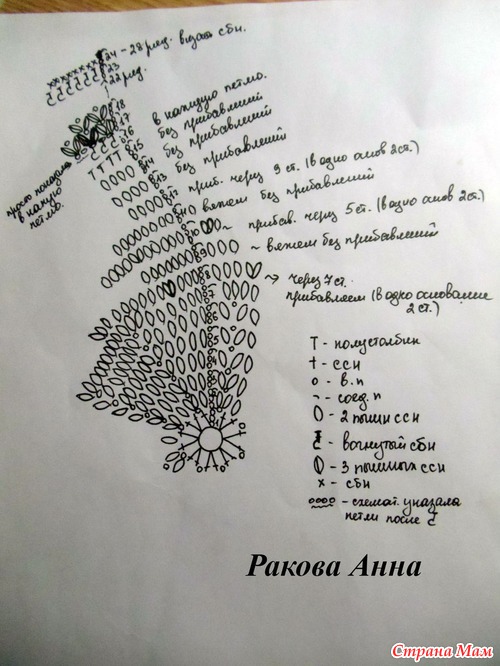 24 - 28 ряд. вязать сбн.
23
22 ряд.
18
17
16
15
14
13
12
11
10
9
8
7
6
5
4
в каждую петлю.
без прибавлений
без прибавлений
без прибавлений
приб. через 9 ст. (в одно основ 2 ст.)
вяжем без прибавлений
~ прибав. через 5 ст. (в одно основ 2 ст.)
~ вяжем без прибавлений
→ через 7 ст.
прибавляем (в одно основание
2 ст.)
в каждую
петлю.
T - полустолбик
† - ссн
o - в.п
- соед. п
- 2 пышн ссн
- вогнутый сбн
- 3 пышных ссн
x - сбн
- схемат. указала
петли после
Ракова Анна
Страна Мам